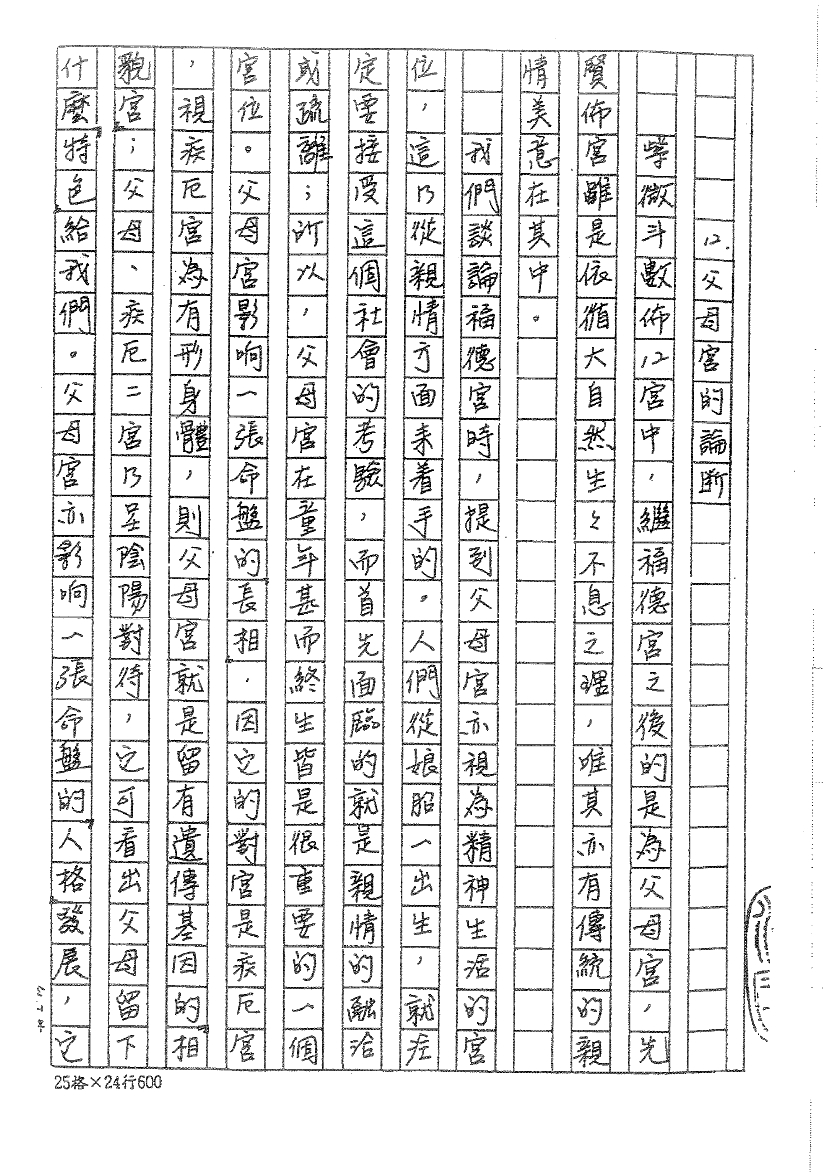 12.父母宮的論断
紫微斗數佈12宮中，繼福德宮之後的是為父母宮，先
賢佈宮雖是依循大自然生々不息之理，唯其亦有傳統的親
情美意在其中。
我們談論福德宮時，提到父母宮亦視為精神生活的宮
位，這乃從親情方面来着手的。人們從娘胎一出生，就注
定要接受這個社會的考驗，而首先面臨的就是親情的融洽
或疏離；所以，父母宮在童年甚而終生皆是很重要的一個
宮位。父母宮影响一張命盤的長相，因它的對宮是疾厄宮
，視疾厄宮為有形身體，則父母宮就是留有遺傳基因的相
貌宮；父母、疾厄二宮乃呈陰陽對待，它可看出父母留下
什麼特色給我們。父母宮亦影响一張命盤的人格發展，它
25格×24行600